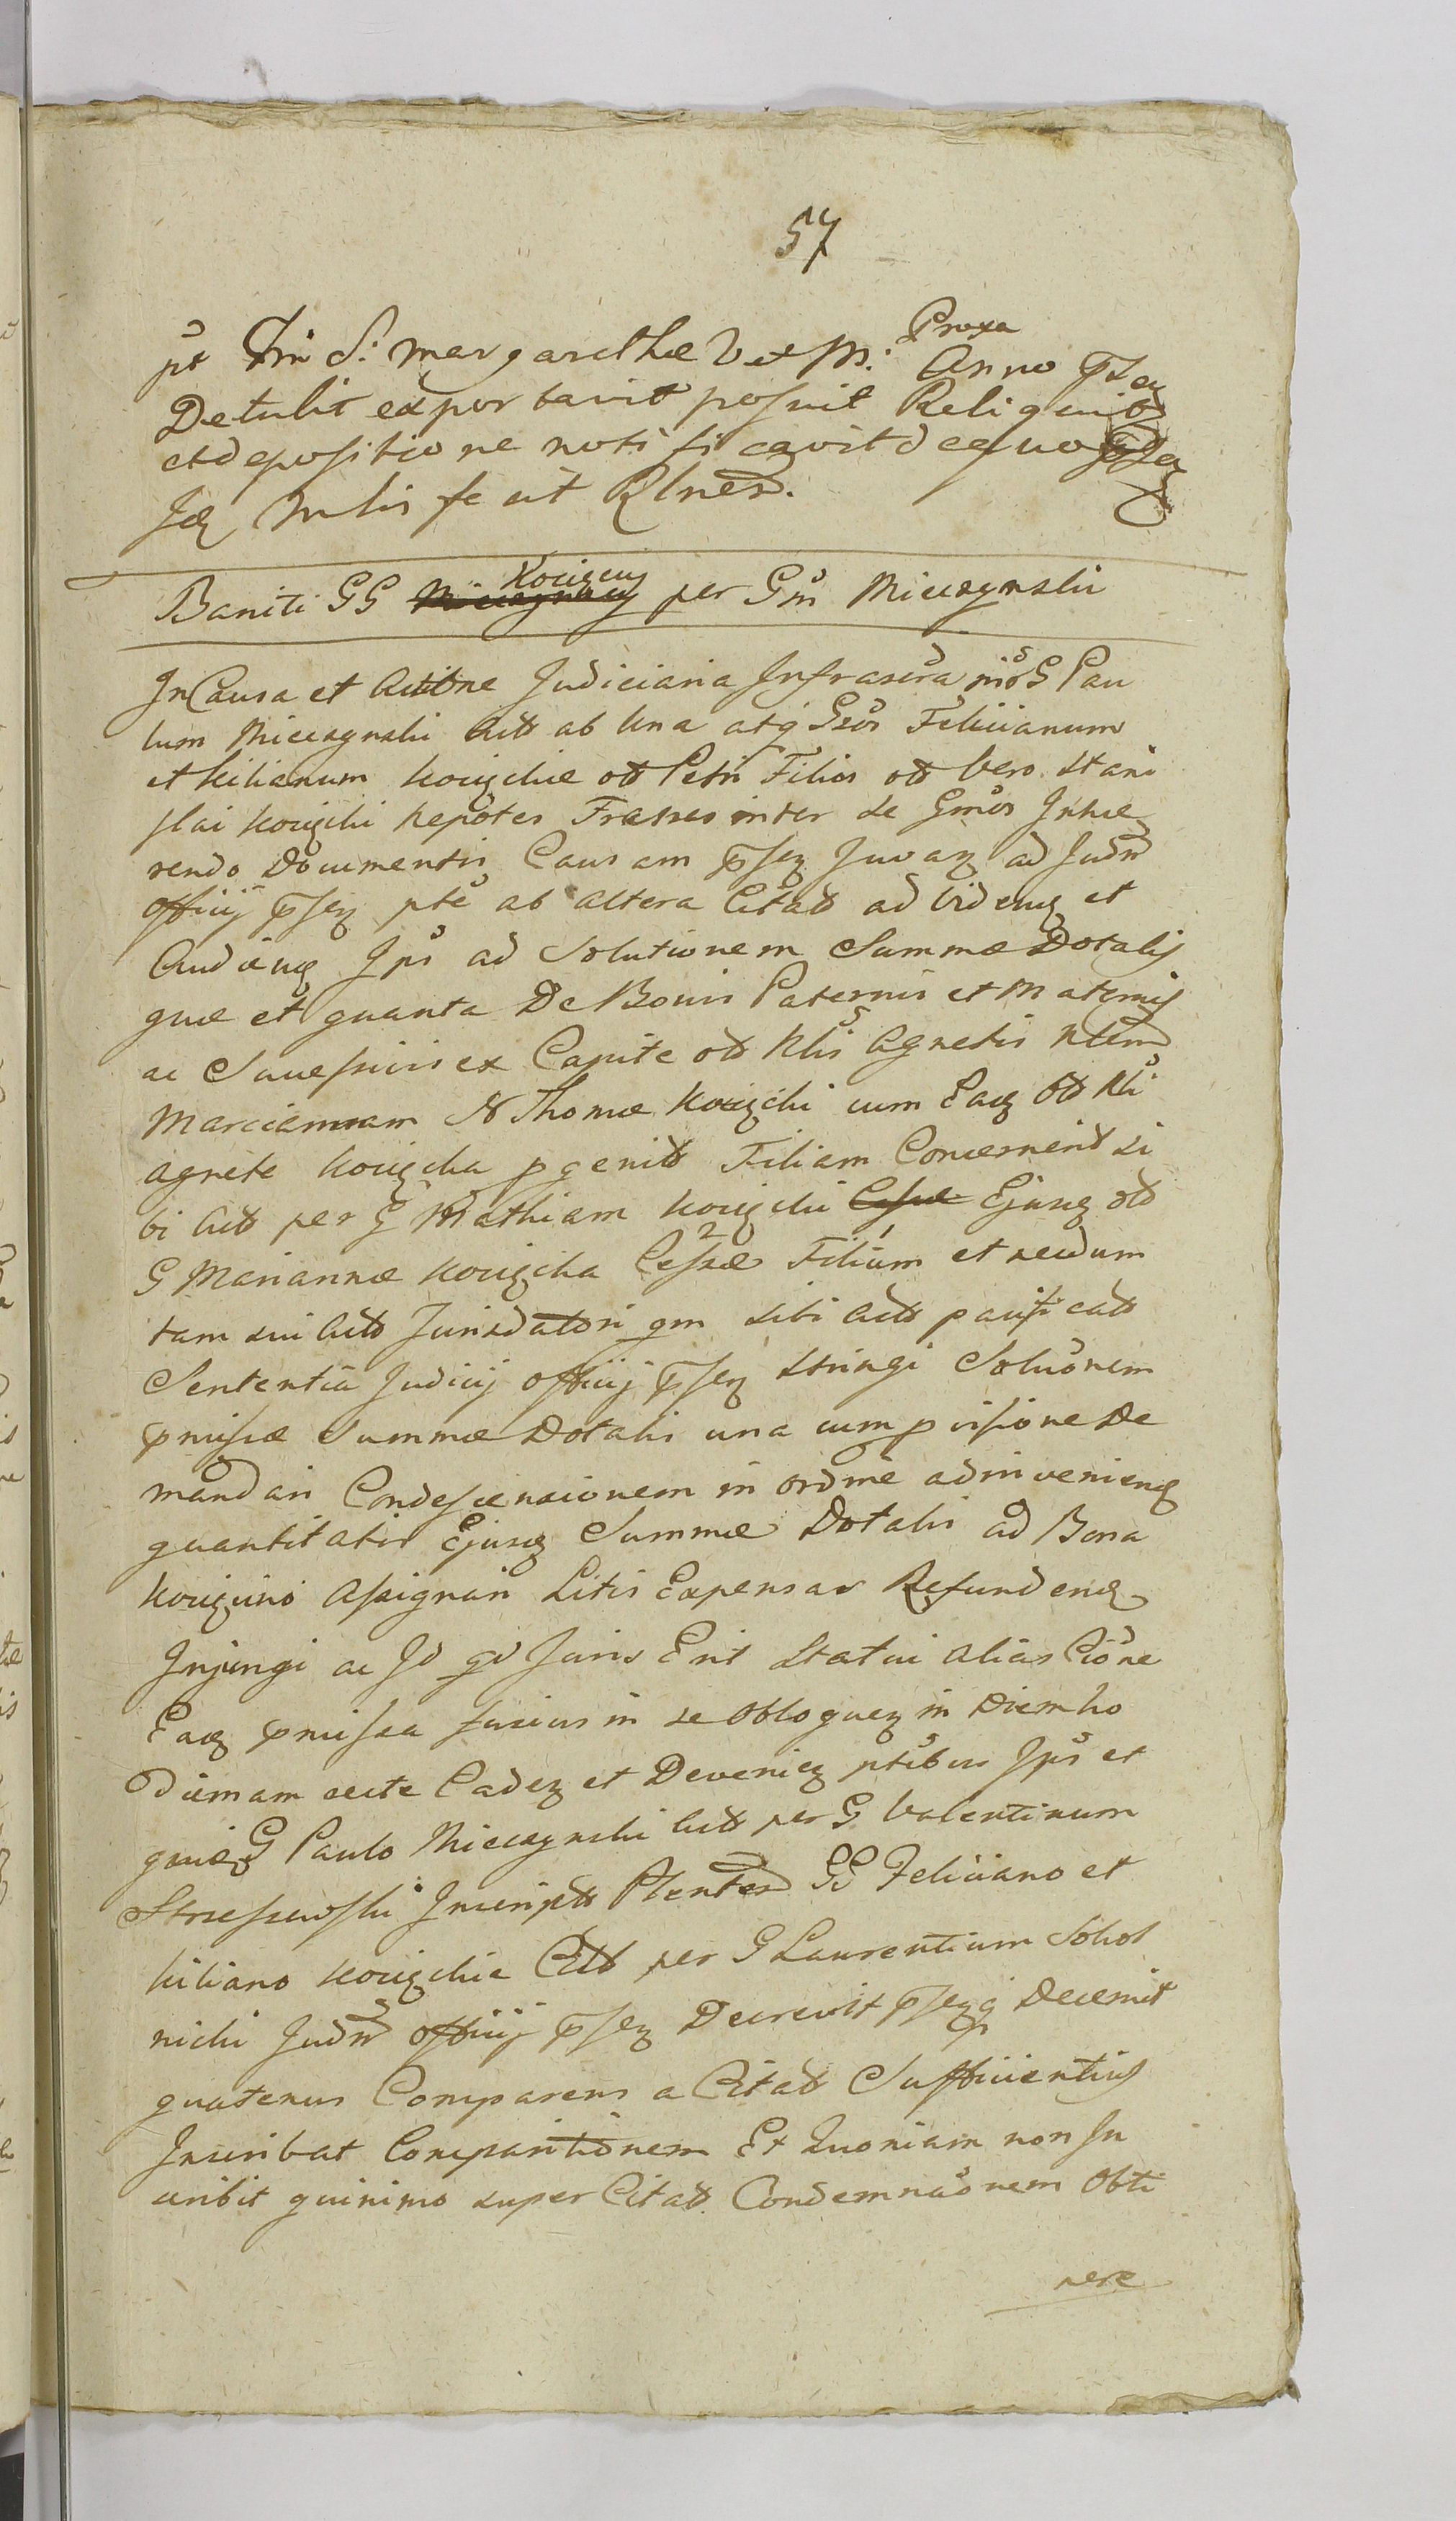 57
pt Fm S: Margarethæ V et M: Proxa Anno
Detulit exportavit posuit Religuit
et depositione notificavit de quo
Mlis fecit Rlnem.
Baniti GG Kocięcy per Gm Mieczynski
In Causa et Actione Judiciaria Infrascra G Pau
lum Mieczynski Act ab una atq Felicianum
et Kilianum Kocięckie olt Petri Filios olt Vero Stani
slai Kocięcki Nepotes Fratres inter se Gmos Inhæ
rendo Documentis Causam pseq Juvaq ad Judm
officij pseq pte ab altera Citatt ad Videnq et
Audienq Ips ad Solutionem Summæ Dotalis
quæ et quanta De Bonis Paternis et Maternis
ac Successivis ex Capite olt Nlis Agnetis
Marciannam N Thomæ Kocięcki cum Eaq Olt Nli
Agnete Kocięcka pgenitt Filiam Concernent si
bi Act per G Mathiam Kocięcki Ejusq olt
G Mariannæ Kocięcka Cessæ Filium et
tam sui Act Jurisdatori qm sibi Act pacificatt
Sententia Judicij officij pseq Stringi Soluonem
pmissæ Summæ Dotalis una cum pvisione De
mandari Condescensionem in ordine adinvenienq
quantitatis Ejusq Summæ Dotalis ad Bona
Kocięcino Assignari Litis Expensas Refundenq
Injungi ac Id qd Juris Erit Statui alias Cione
Eaq pmissa fusius in se obloqueq in Diem ho
diernam recte Cadeq et Devenieq ptibus Ips et
G Paulo Mieczynski Act per G Valentinum
Strzeszewski Inscript GG Feliciano et
Kiliano Kocięckie Citt per G Laurentium Sokol
nicki Judm officij pseq Decrevit pseqq Decernit
quatenus Comparens a Citatt Sufficientius
Inscribat Comparitionem Et Quoniam non In
scribit quinimo super Citatt Condemnaonem Obti
nere